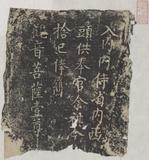 入內內侍省內西
頭供奉官余
捨已俸
觀音菩薩壹尊